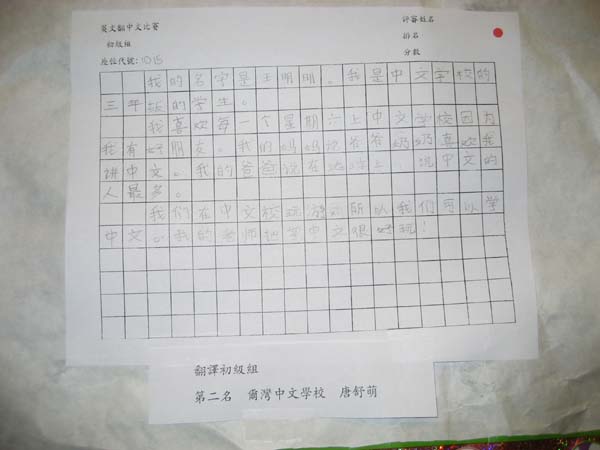 英文翻中文比賽
初級組
座位代號: 1015
評審姓名
排名
分數
我的名字是王明明。我是中文学校的
三年级的学生。
我喜欢每一个星期六上中文学校因为
我有好朋友。我的妈妈说爷爷奶奶喜欢我
讲中文。我的爸爸说在 上,说中文的
人最多。
我们在中文校玩游戏所以我们可以学
中文。我的老师 学中文很好玩!
翻譯初級組
第二名 爾灣中文學校 唐舒萌